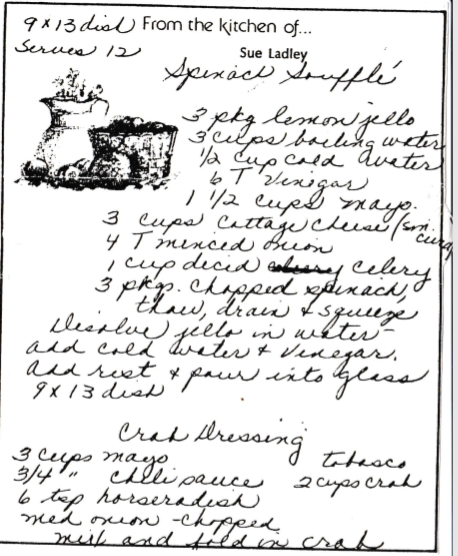 9 x 13 dish From the kitchen of...
Serves 12 Sue Ladley
Spinach Soufflé
3 pkg lemon jello
3 cups boiling water
1/2 cup cold water
6 T Vinegar
1 1/2 cups mayo.
3 cups Cottage Cheese (sm. curd)
4 T minced onion
1 cup diced celery
3 pkgs. chopped spinach,
thaw, drain & squeeze
Disolve jello in water -
add cold water & vinegar.
Add rest & pour into glass
9 x 13 dish
Crab Dressing
3 cups mayo tobasco
3/4 " chili sauce 2 cups crab
6 tsp horseradish
med onion - chopped
mix and fold in crab